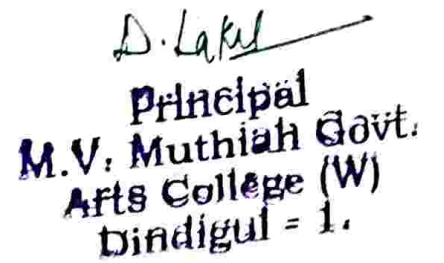 D. Laksh
Principal
M.V. Muthiah Govt.
Arts College (W)
Dindigul - 1.